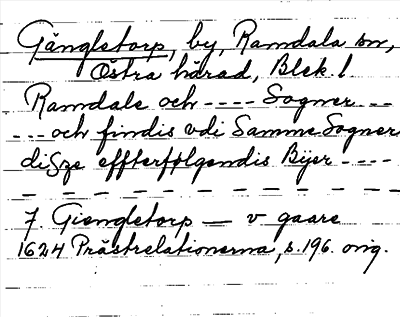 Gängletorp, by, Ramdala sn,
Östra härad, Blek. l.
Ramdale och ---- Sogner ---
--- och findis udi Samme Sogner
disze effterfølgendis Bÿer ----
- - - - - - - - - - - - - - -
7 Giengletorp — v gaare
1624 Prästrelationerna, s. 196. orig.